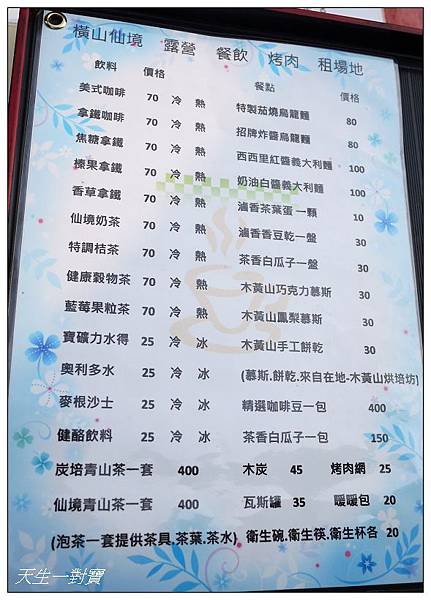 橫山仙境 露營 餐飲 烤肉 租場地
飲料 價格 餐點 價格
美式咖啡 70 冷 熱 特製茄燒烏龍麵 80
拿鐵咖啡 70 冷 熱 招牌炸醬烏龍麵 80
焦糖拿鐵 70 冷 熱 西西里紅醬義大利麵 100
榛果拿鐵 70 冷 熱 奶油白醬義大利麵 100
香草拿鐵 70 冷 熱 滷香茶葉蛋一顆 10
仙境奶茶 70 冷 熱 滷香香豆乾一盤 30
特調桔茶 70 冷 熱 茶香白瓜子一盤 30
健康穀物茶 70 冷 熱 木黃山巧克力慕斯 30
藍莓果粒茶 70 冷 熱 木黃山鳳梨慕斯 30
寶礦力水得 25 冷 冰 木黃山手工餅乾 30
奧利多水 25 冷 冰 (慕斯.餅乾.來自在地-木黃山烘培坊)
麥根沙士 25 冷 冰 精選咖啡豆一包 400
健酪飲料 25 冷 冰 茶香白瓜子一包 150
炭培青山茶一套 400 木炭 45 烤肉網 25
仙境青山茶一套 400 瓦斯罐 35 暖暖包 20
(泡茶一套提供茶具.茶葉.茶水) 衛生碗.衛生筷.衛生杯各 20
天生一對寶